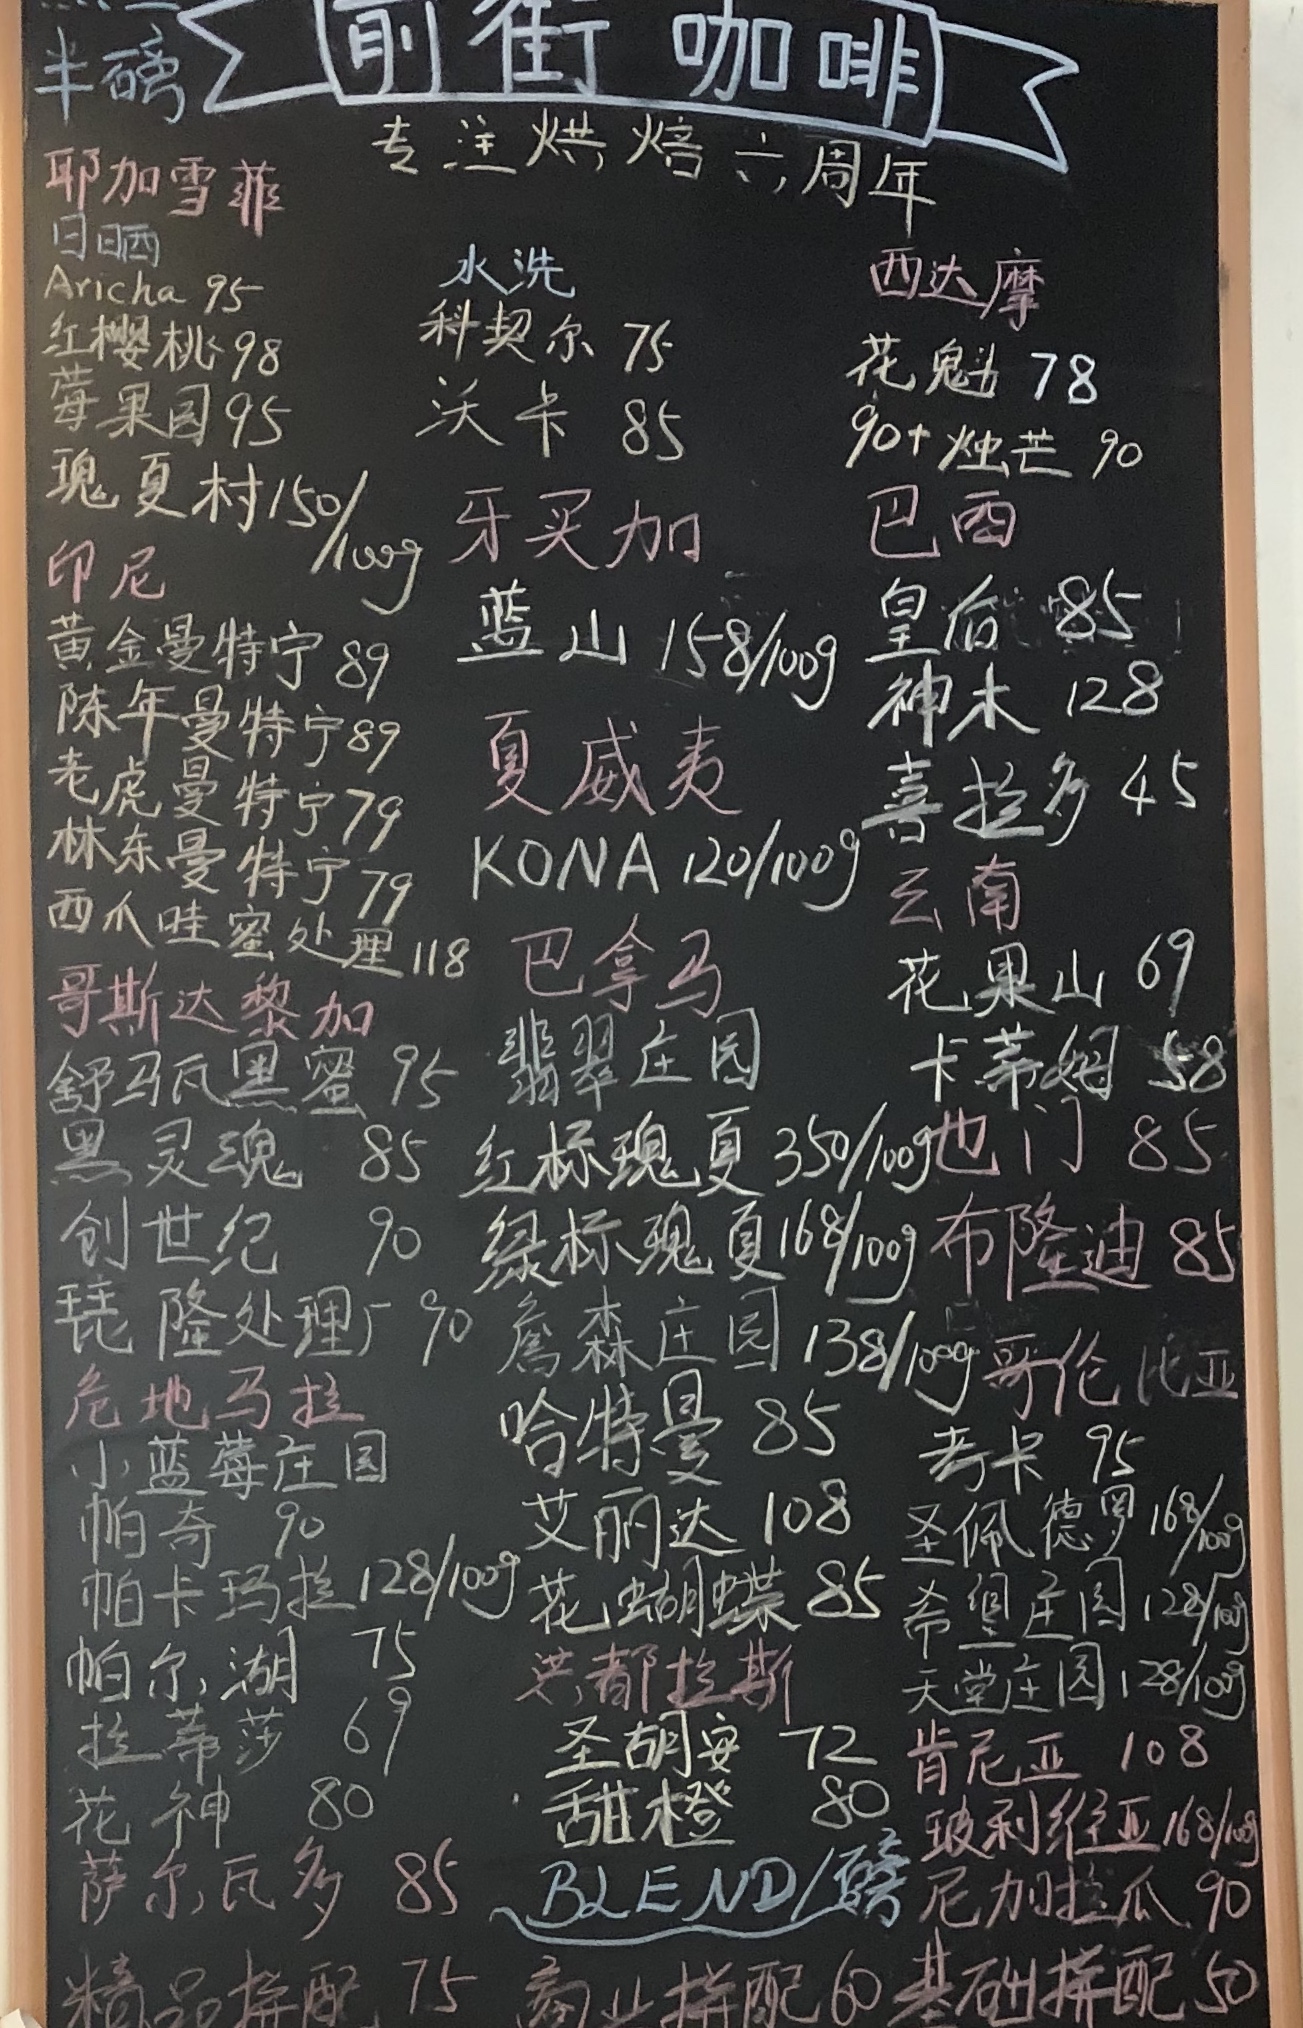 半磅
前街咖啡
专注烘焙六周年
耶加雪菲
日晒
Aricha 95
红樱桃 98
莓果园 95
瑰夏村 150/100g
印尼
黄金曼特宁 89
陈年曼特宁 89
老虎曼特宁 79
林东曼特宁 79
西爪哇蜜处理 118
哥斯达黎加
舒马瓦黑蜜 95
黑灵魂 85
创世纪 90
琵隆处理厂 90
危地马拉
小蓝莓庄园
帕奇 90
帕卡玛拉 128/100g
帕尔湖 75
拉蒂莎 69
花神 80
萨尔瓦多 85
精品拼配 75
水洗
科契尔 75
沃卡 85
牙买加
蓝山 158/100g
夏威夷
KONA 120/100g
巴拿马
翡翠庄园
红标瑰夏 350/100g
绿标瑰夏 168/100g
詹森庄园 138/100g
哈特曼 85
艾丽达 108
花蝴蝶 85
洪都拉斯
圣胡安 72
甜橙 80
BLEND/磅
商业拼配 60
西达摩
花魁 78
90+烛芒 90
巴西
皇后 85
神木 128
喜拉多 45
云南
花果山 69
卡蒂姆 58
也门 85
布隆迪 85
哥伦比亚
考卡 95
圣佩德罗 168/100g
希望庄园 128/100g
天堂庄园 128/100g
肯尼亚 108
玻利维亚 168/100g
尼加拉瓜 90
基础拼配 50